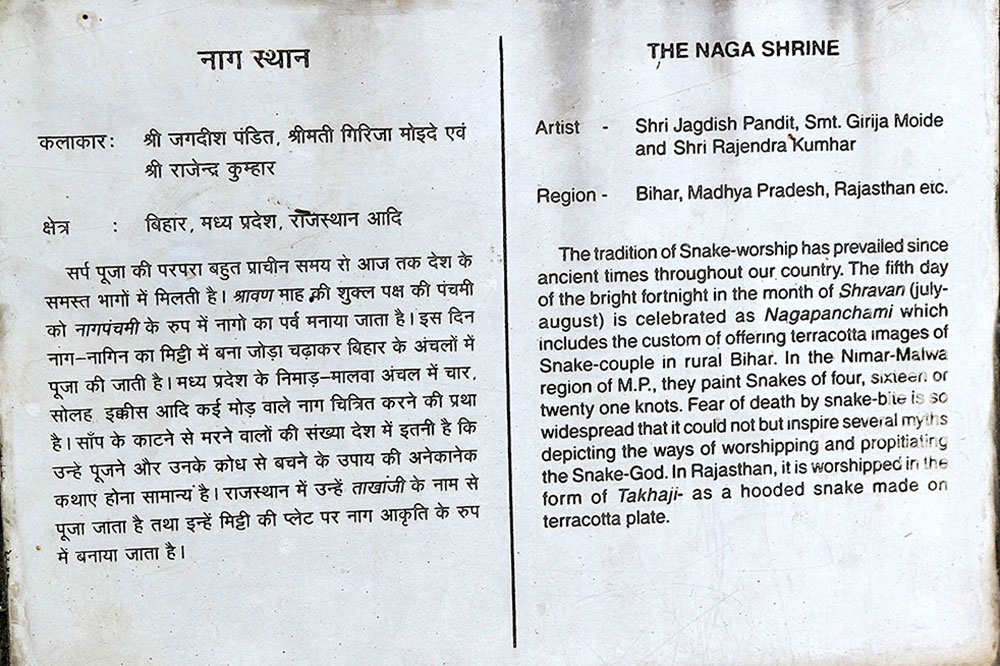 नाग स्थान
कलाकार: श्री जगदीश पंडित, श्रीमती गिरिजा मोइदे एवं
श्री राजेन्द्र कुम्हार
क्षेत्र : बिहार, मध्य प्रदेश, राजस्थान आदि
सर्प पूजा की परपरा बहुत प्राचीन समय रो आज तक देश के
समस्त भागों में मिलती है। श्रावण माह की शुक्ल पक्ष की पंचमी
को नागपंचमी के रुप में नागो का पर्व मनाया जाता है। इस दिन
नाग–नागिन का मिट्टी में बना जोड़ा चढ़ाकर बिहार के अंचलों में
पूजा की जाती है। मध्य प्रदेश के निमाड़–मालवा अंचल में चार,
सोलह इक्कीस आदि कई मोड़ वाले नाग चित्रित करने की प्रथा
है। साँप के काटने से मरने वालों की संख्या देश में इतनी है कि
उन्हें पूजने और उनके क्रोध से बचने के उपाय की अनेकानेक
कथाए होना सामान्य है। राजस्थान में उन्हें ताखांजी के नाम से
पूजा जाता है तथा इन्हें मिट्टी की प्लेट पर नाग आकृति के रुप
में बनाया जाता है।
THE NAGA SHRINE
Artist - Shri Jagdish Pandit, Smt. Girija Moide
and Shri Rajendra Kumhar
Region - Bihar, Madhya Pradesh, Rajasthan etc.
The tradition of Snake-worship has prevailed since
ancient times throughout our country. The fifth day
of the bright fortnight in the month of Shravan (july-
august) is celebrated as Nagapanchami which
includes the custom of offering terracotta images of
Snake-couple in rural Bihar. In the Nimar-Malwa
region of M.P., they paint Snakes of four, sixteen or
twenty one knots. Fear of death by snake-bite is so
widespread that it could not but inspire several myths
depicting the ways of worshipping and propitiating
the Snake-God. In Rajasthan, it is worshipped in the
form of Takhaji- as a hooded snake made on
terracotta plate.